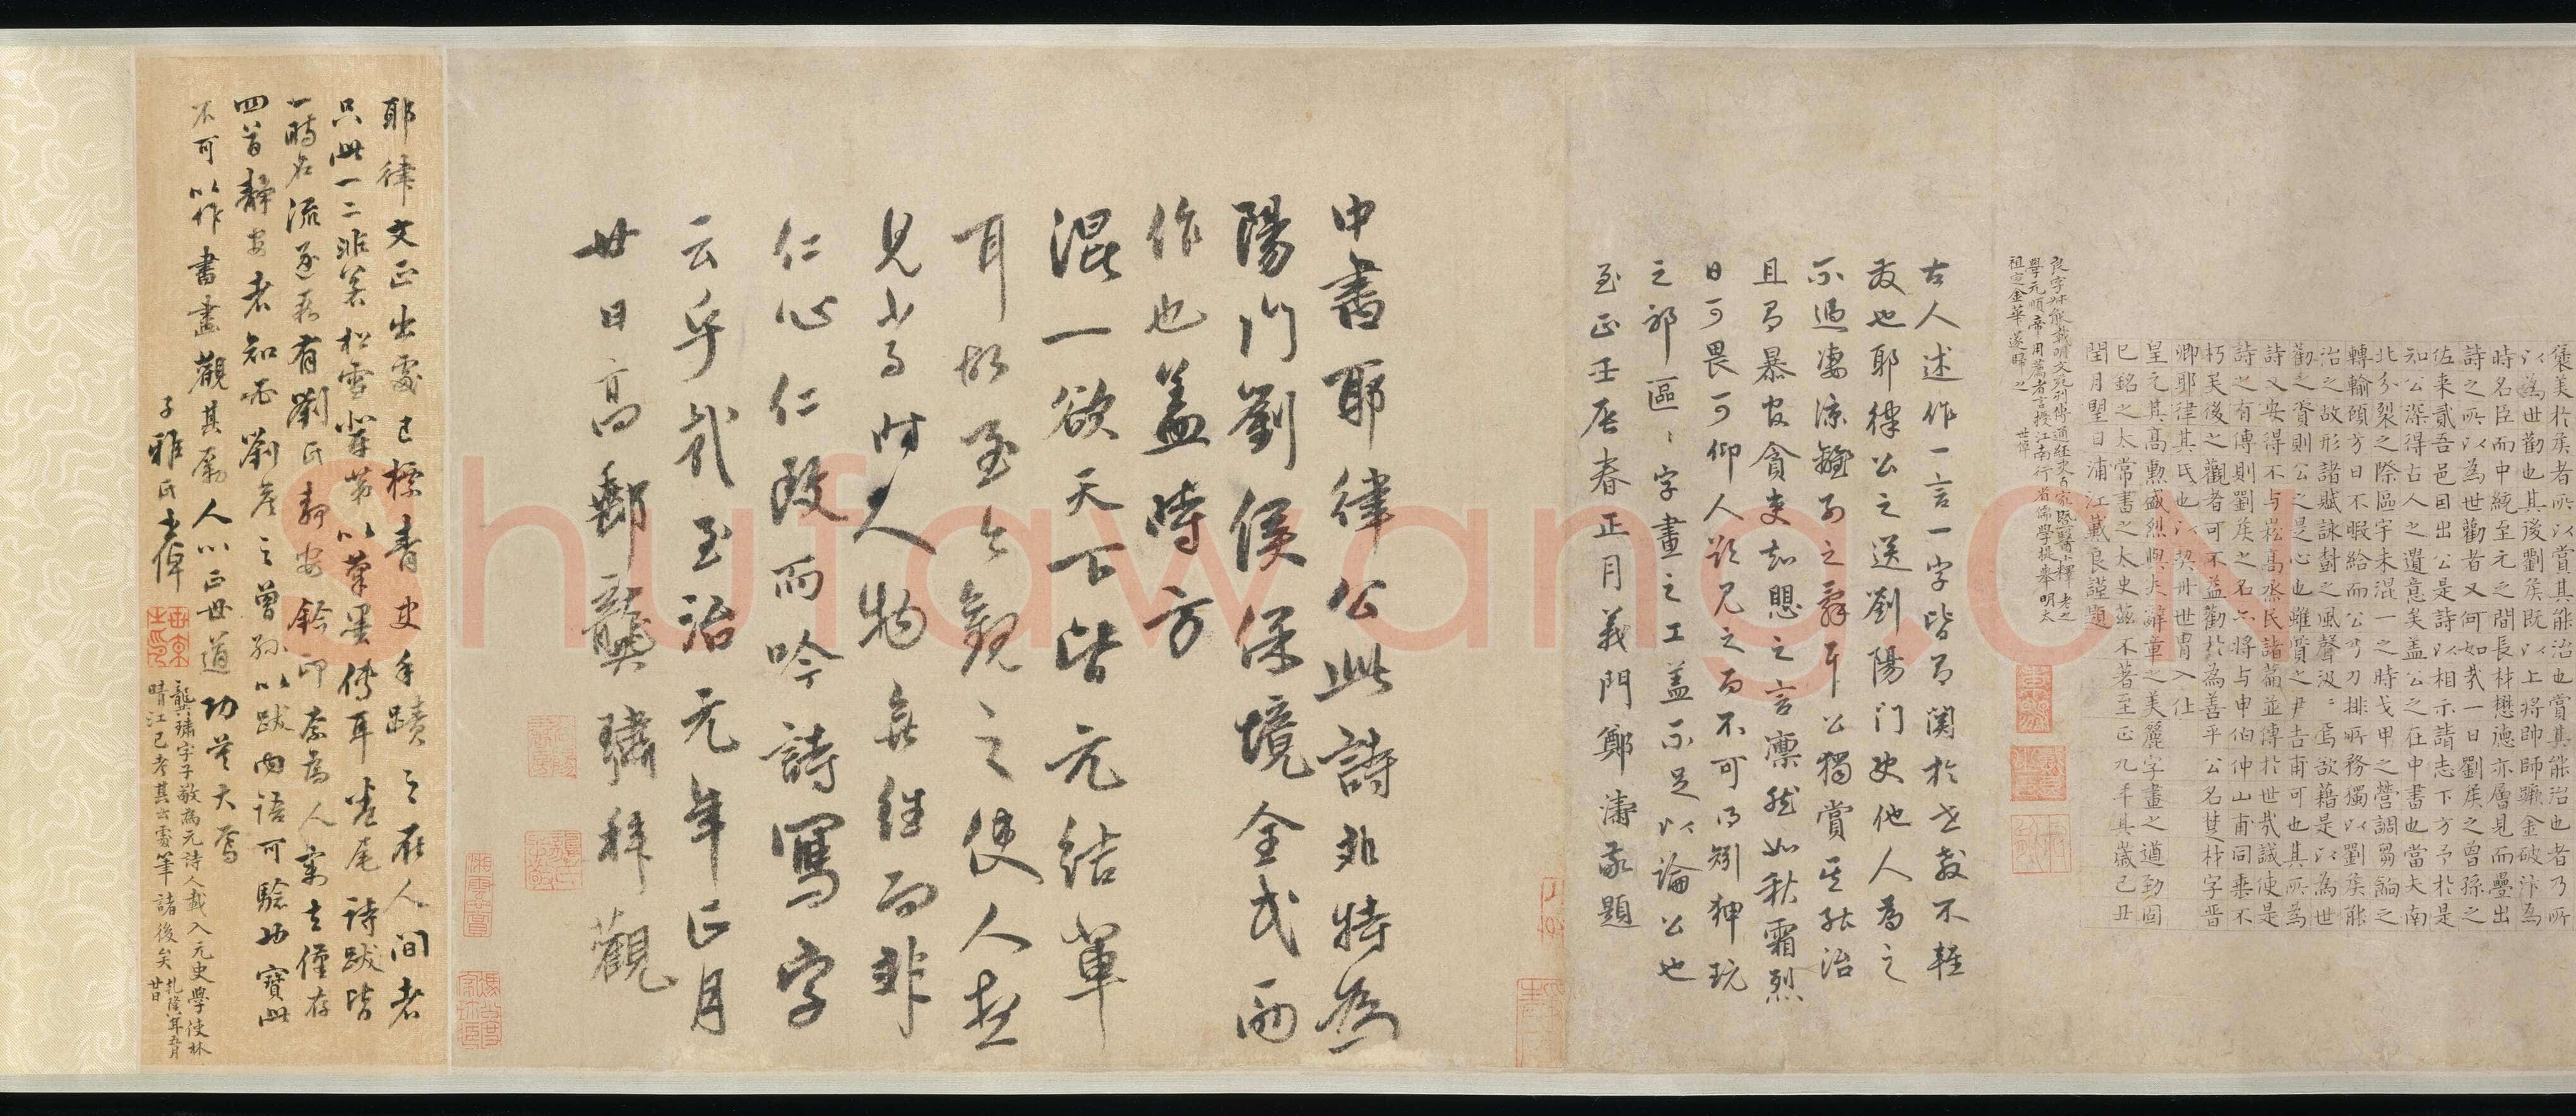 褒美於矦者所以賞其能治也賞其能治也者乃所
以為世勸也其後劉矦既以上將帥師蹶金破汴為
時名臣而中統至元之間長材懋德亦層見而疊出
詩之所以為世勸者又何如哉一日劉矦之曾孫之
佐來貳吾邑因出公是詩以相示請志下方予於是
知公深得古人之遺意矣蓋公之在中書也當大南
北分裂之際區宇未混一之時戈甲之營調芻餉之
轉輸頃方日不暇給而公方刀排斥務獨以劉矦能
治之故形諸賦詠對之風聲汲〻焉故藉是以為世
勸之資則公之是心也雖質之尹吉甫可也其所為
詩又安得不与崧高烝民諸篇並傳於世哉誠使是
詩之有傳則劉矦之名亦將与申伯仲山甫同垂不
朽矣後之觀者可不益勸於為善乎公名楚材字晉
卿耶律其氏也以契丹世胄入仕
皇元其高勳盛烈與夫辭章之美麗字畫之遒勁固
已銘之太常書之太史茲不著至正九年其歲己丑
閏月朢日浦江戴良謹題
良字叔能載明文苑列傳通經史百家暨醫卜釋老之
學元順帝用薦者言授江南行省儒學提舉明太
祖定金華遂歸之
古人述作一言一字皆有関於世教不輕
發也耶律公之送劉陽門使他人為之
不過凄凉離別之辭耳公獨賞其能治
且有暴官貪吏知愳之言凛然如秋霜烈
日可畏可仰人欲見之而不可得矧狎玩
之邪區〻字畫之工盖不足以論公也
至正壬辰春正月義門鄭濤敬題
中書耶律公此詩非特為
陽門劉侯保境全民而
作也盖時方
混一欲天下皆元結軰
耳故至今觀之使人想
見当時人物無徃而非
仁心仁政而吟詩寫字
云乎哉至治元年正月
廿日高郵龔璛拜觀
耶律文正出處已標青史手蹟之在人間者
只此一二非若松雪輩第以筆墨傳耳卷尾詩跋皆
一時名流遂森有劉氏靜安鈐印柰為人寀去僅存
四首靜安者知為劉矦之曾孫以跋内語可驗也寶此
不可以作書畫觀其勵人以正世道功莫大焉
子雅氏焯
龔璛字子敬為元詩人載入元史學使林
晴江已考其出處筆諸後矣乾隆年五月
廿日